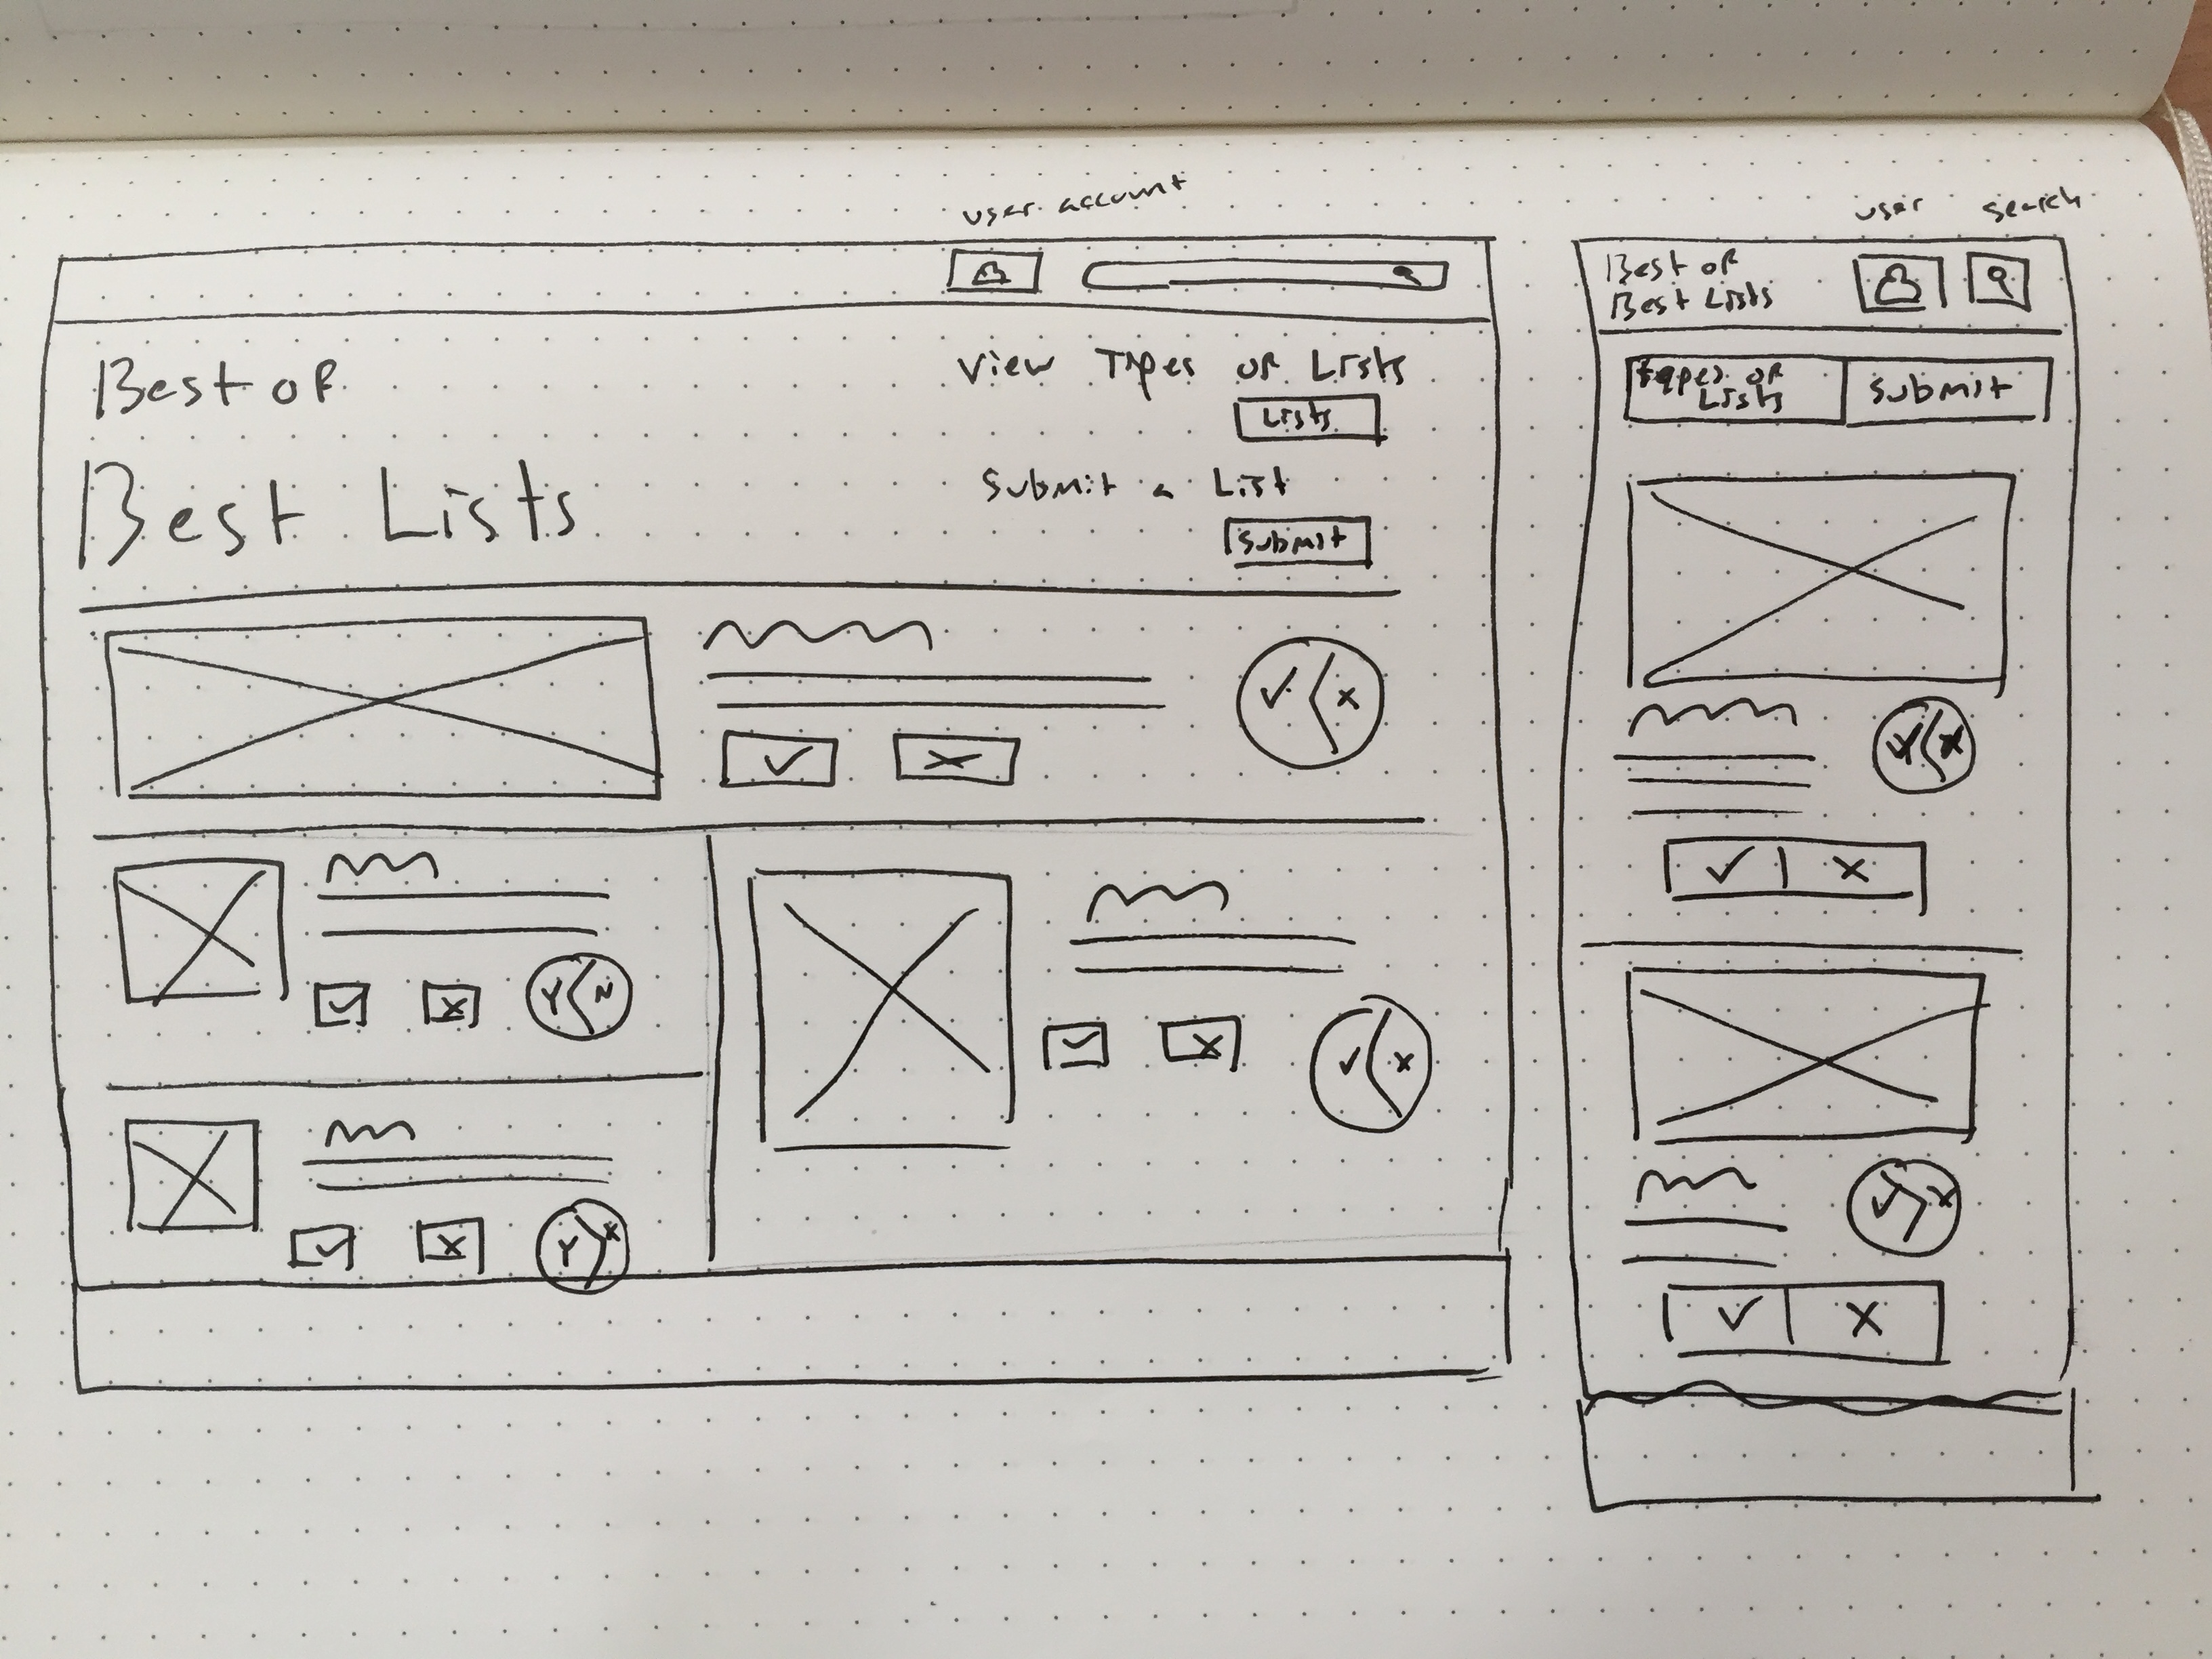 user account
Best of
Best Lists
View Types of Lists
Lists
Submit a List
Submit
Y N
Y X
user search
Best of
Best Lists
types of
Lists
Submit